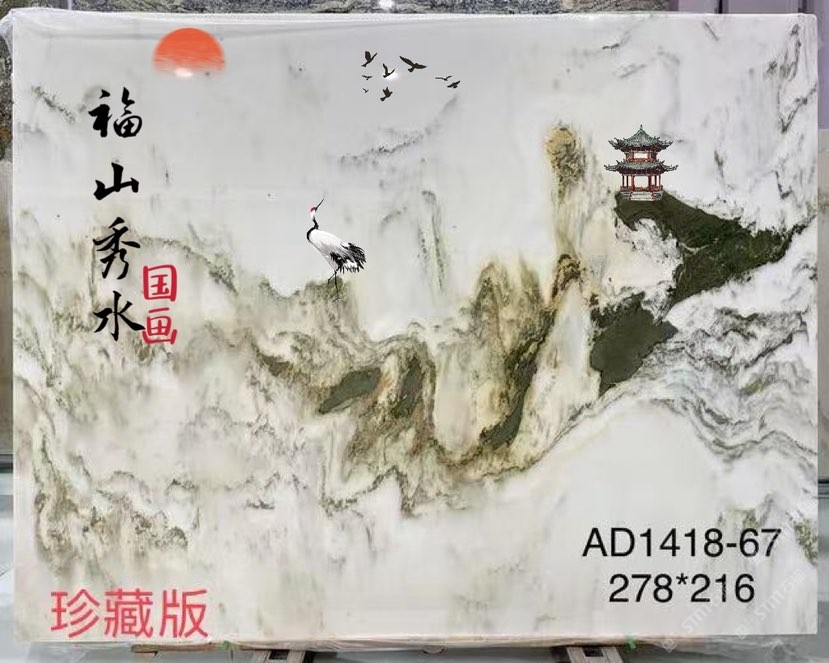 福山秀水
国画
AD1418-67
278*216
珍藏版